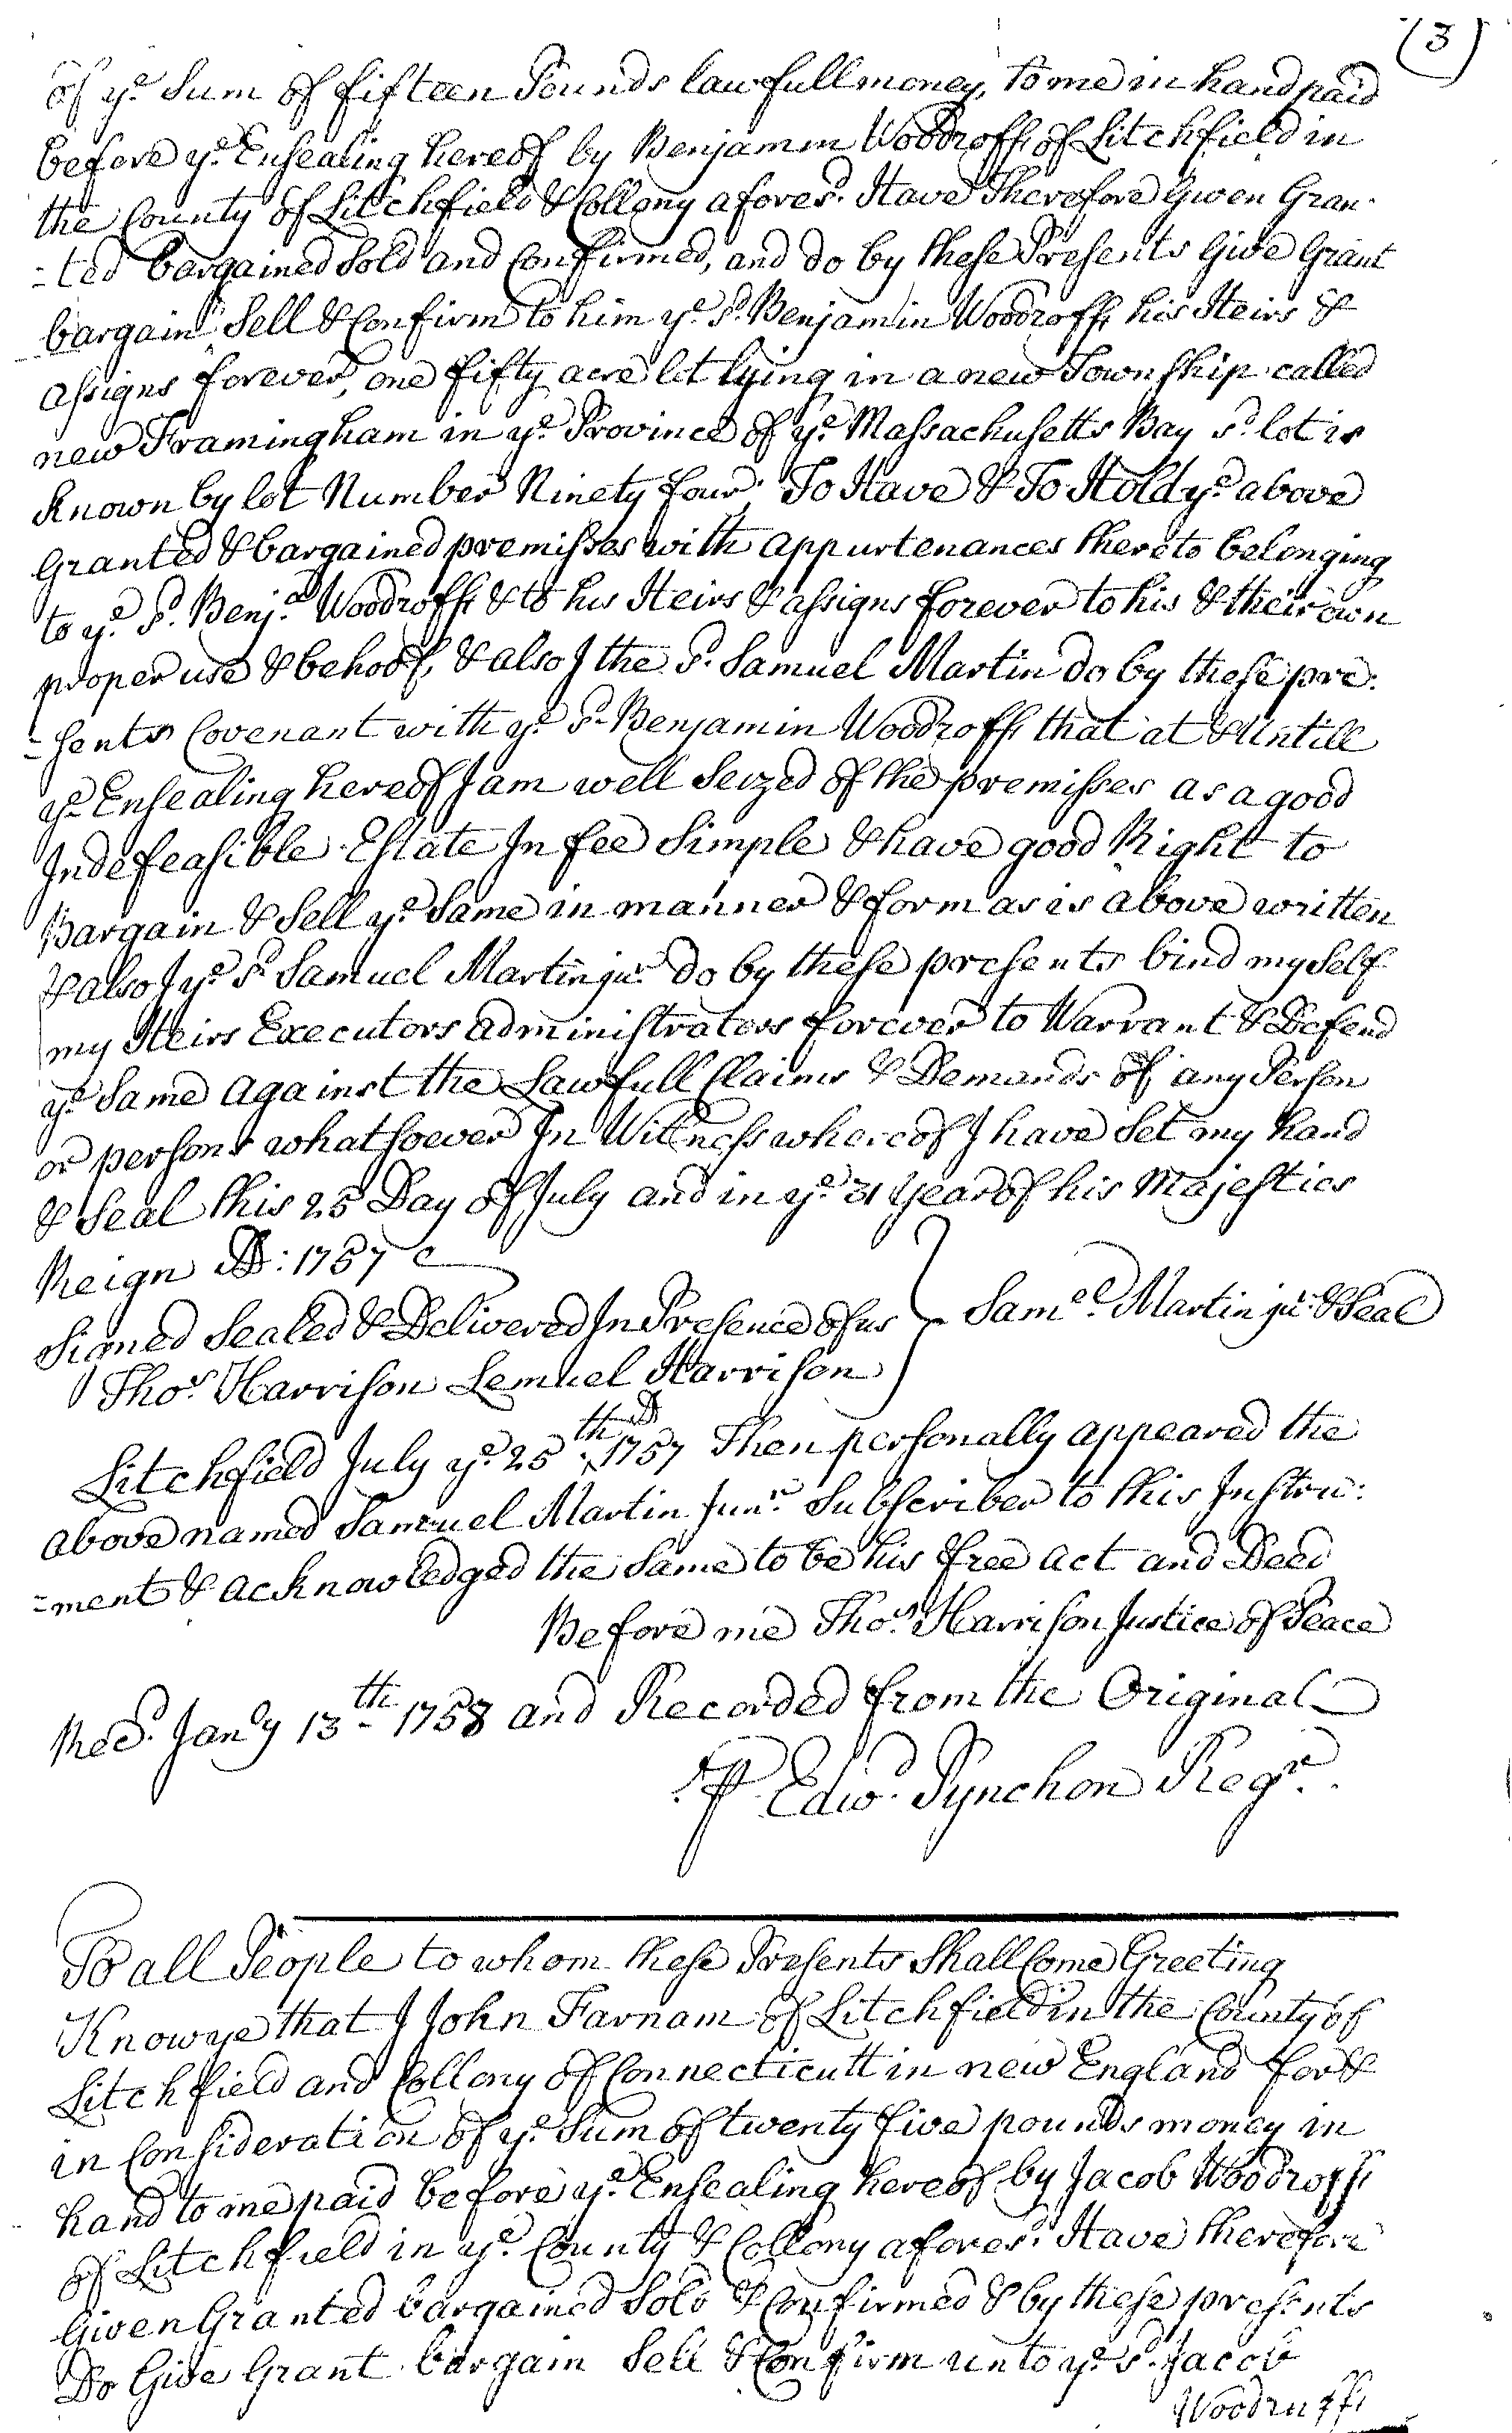 (3)
of ye Sum of fifteen Pounds lawfull money, to me in hand paid
before ye Ensealing hereof by Benjamin Woodroff, of Litchfield in
the County of Litchfield & Collony afores.d Have Therefore Given Gran-
-ted bargained Sold and Confirmed, and do by these Presents Give Grant
bargain Sell & Confirm to him ye sd Benjamin Woodroff, his Heirs &
assigns forever, one fifty acre lot lying in a new Township called
new Framingham in ye Province of ye Massachusetts Bay sd lot is
known by lot Number Ninety four; To Have & To Hold ye above
Granted & bargained premisses with appurtenances thereto belonging
to ye sd Benj.a Woodroff, & to his Heirs & assigns forever to his & their own
proper use & behoof, & also I the sd Samuel Martin do by these pre:
-sents Covenant with ye sd Benjamin Woodroff, that at & Untill
ye Ensealing hereof I am well Seized of the premisses as a good
Indefeasible Estate In fee Simple & have good Right to
Bargain & Sell ye Same in manner & form as is above written
& also I ye sd Samuel Martin jur do by these presents bind my Self
my Heirs Executors administrators forever to Warrant & Defend
ye Same against the Lawfull Claims & Demands of any Person
or persons whatsoever In Wittness whereof I have Set my hand
& Seal this 25 Day of July and in ye 31 Year of his Majesties
Reign AD: 1757
Signed Sealed & Delivered In Presence of us } Sam.el Martin jur & Seal
Thos Harrison Lemuel Harrison
Litchfield July ye 25th AD 1757 Then personally appeared the
above named Samuel Martin Junr Subscriber to this Instru:
-ment & acknowledged the Same to be his free act and Deed
Before me Thos Harrison Justice of Peace
Recd Jany 13th 1758 and Recorded from the Original
P Edwd Pynchon Regr.
To all People to whom these Presents Shall Come Greeting
Know ye that I John Farnam of Litchfield in the County of
Litchfield and Collony of Connecticutt in new England for &
in Consideration of ye Sum of twenty five pounds money in
hand to me paid before ye Ensealing hereof by Jacob Woodroff,
of Litchfield in ye County & Collony afores.d Have therefore
Given Granted bargained Sold & Confirmed & by these presents
Do Give Grant bargain Sell & Confirm unto ye sd Jacob
Woodruff,